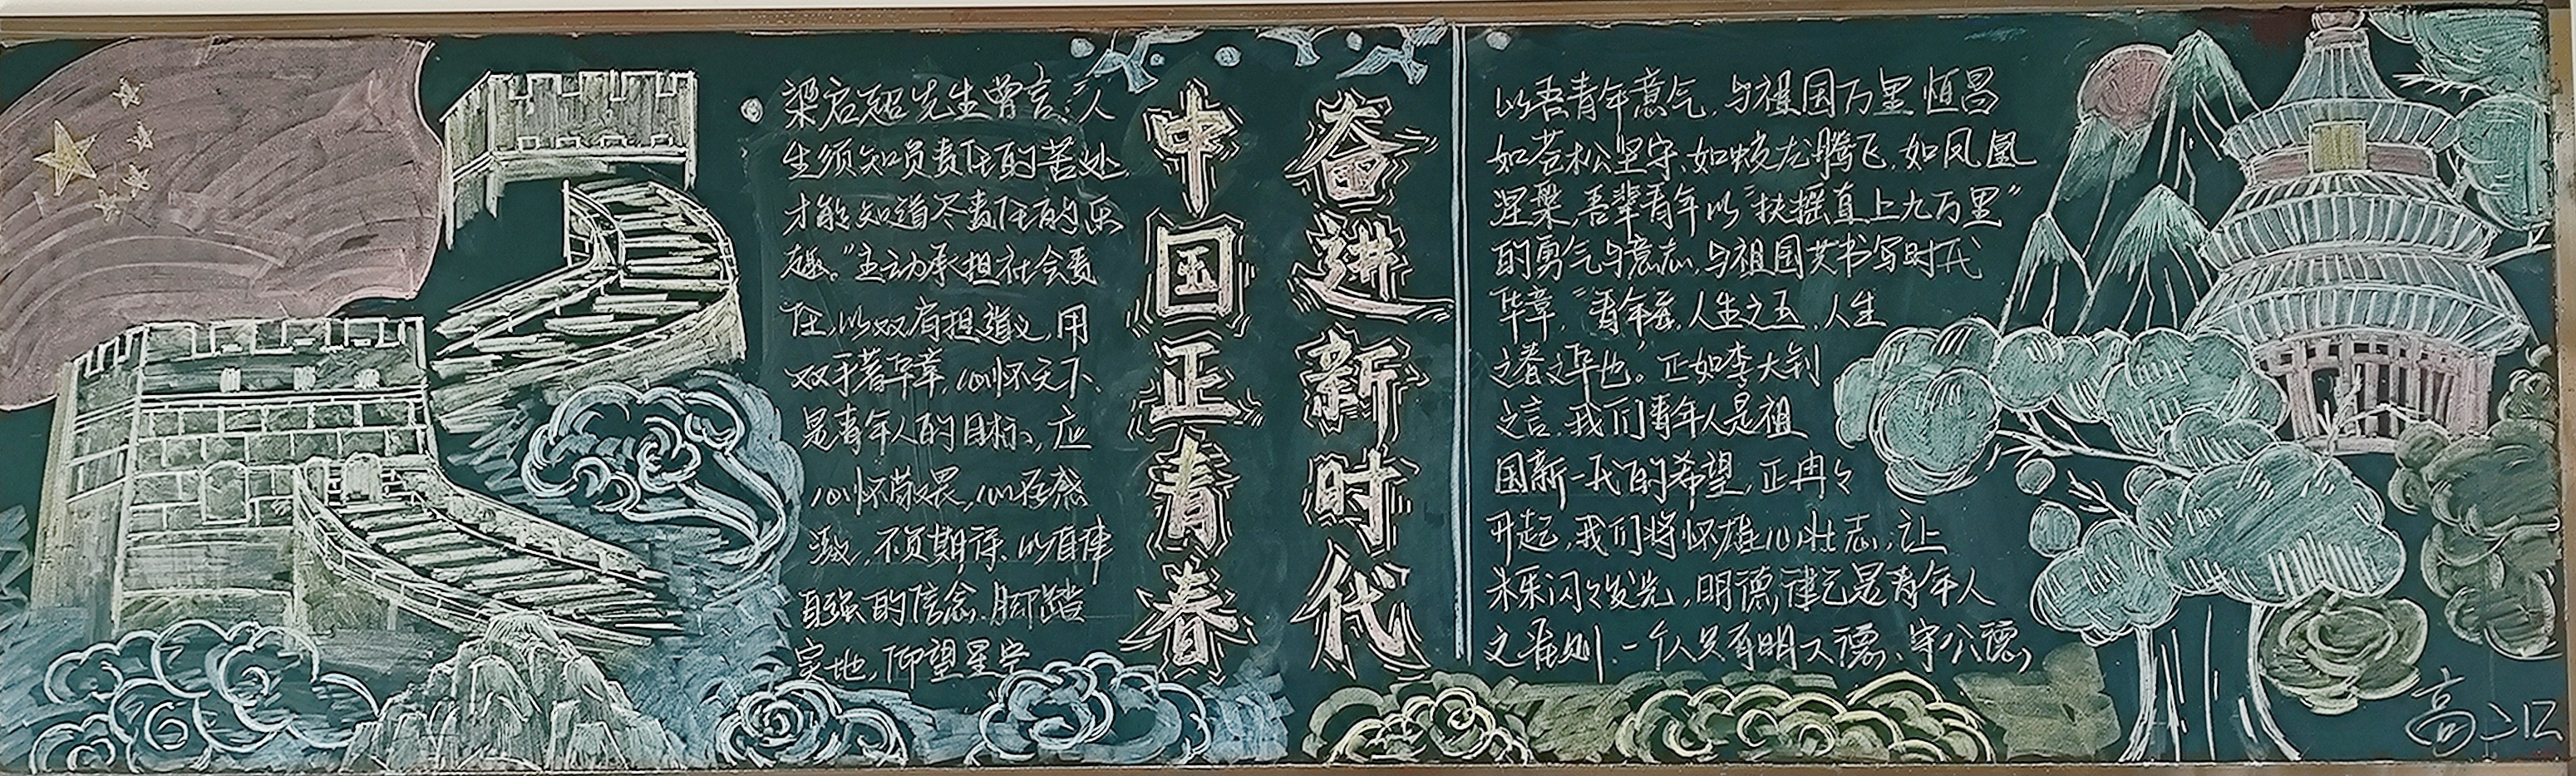 梁启超先生曾言:"人
生须知负责任的苦处,
才能知道尽责任的乐
趣。"主动承担社会责
任,以双肩担道义,用
双手著华章,心怀天下,
是青年人的目标,应
心怀敬畏,心存感
激,不负期许,以自律
自强的信念,脚踏
实地,仰望星空
奋进新时代
中国正青春
以吾青年意气,与祖国万里恒昌
如苍松坚守、如蛟龙腾飞,如凤凰
涅槃,吾辈青年以"扶摇直上九万里"
的勇气与意志,与祖国共书写时代
华章,"青年者,人生之王,人生
之春之华也。"正如李大钊
之言,我们青年人是祖
国新一代的希望,正冉々
升起,我们将怀雄心壮志,让
未来闪々发光,明德律己是青年人
之准则,一个人只有明大德、守公德,
高二12